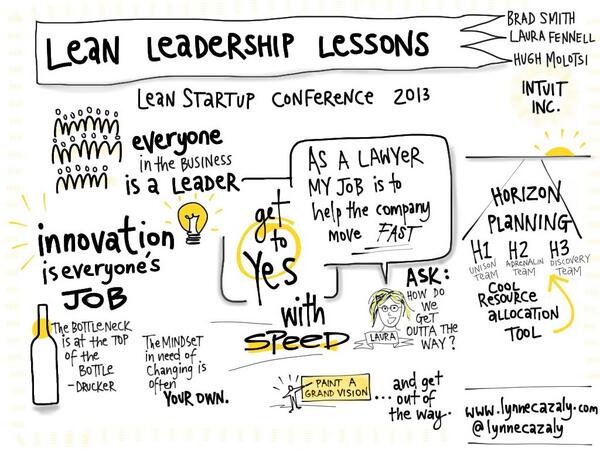 LEAN LEADERSHIP LESSONS
BRAD SMITH
LAURA FENNELL
HUGH MOLOTSI
INTUIT
INC.
LEAN STARTUP CONFERENCE 2013
everyone
in the BUSINESS
is a LEADER
innovation
is everyone's
JOB
The BOTTLENECK
is at the TOP
of the
BOTTLE
- DRUCKER
The MINDSET
in need of
Changing is
often
YOUR OWN.
get
to
Yes
with
SPEED
AS A LAWYER
MY JOB is to
help the company
move FAST
LAURA
ASK:
HOW DO
WE
GET
OUTTA THE
WAY?
PAINT A
GRAND VISION
... and get
out of
the way..
HORIZON
PLANNING
H1 H2 H3
UNISON TEAM
ADRENALIN TEAM
DISCOVERY TEAM
COOL
RESOURCE
aLLOCATION
TOOL
www.lynnecazaly.com
@lynnecazaly